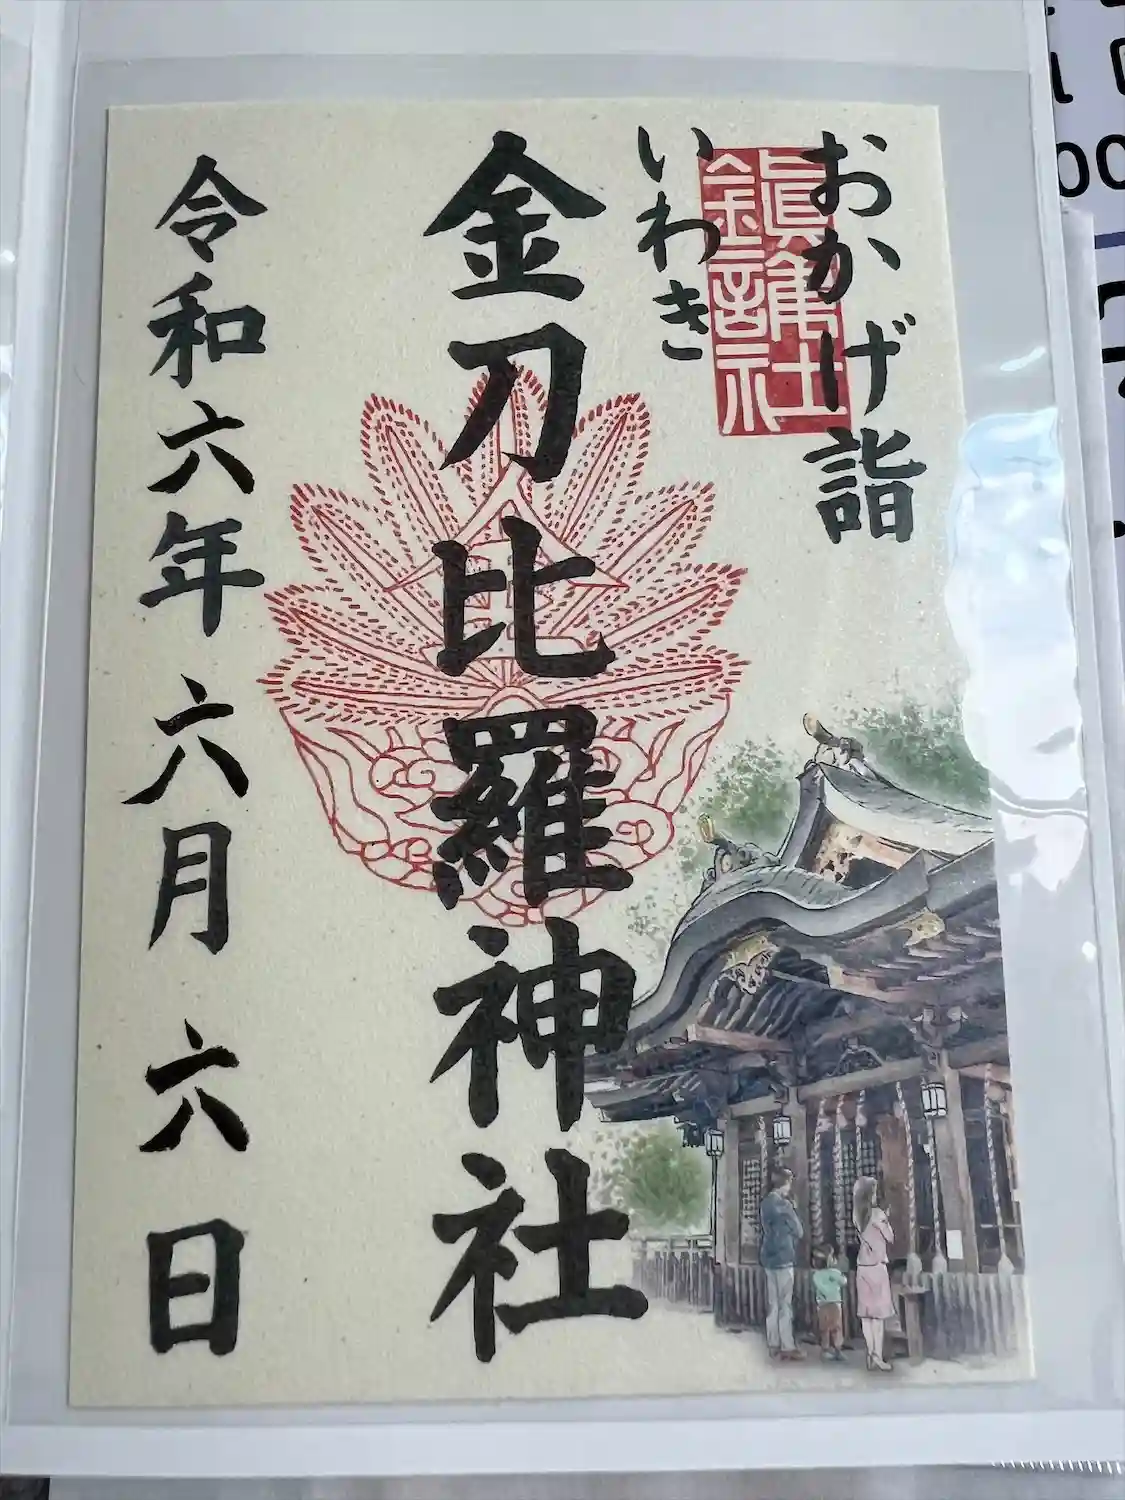 おかげ詣
いわき
金刀比羅神社
令和六年六月六日